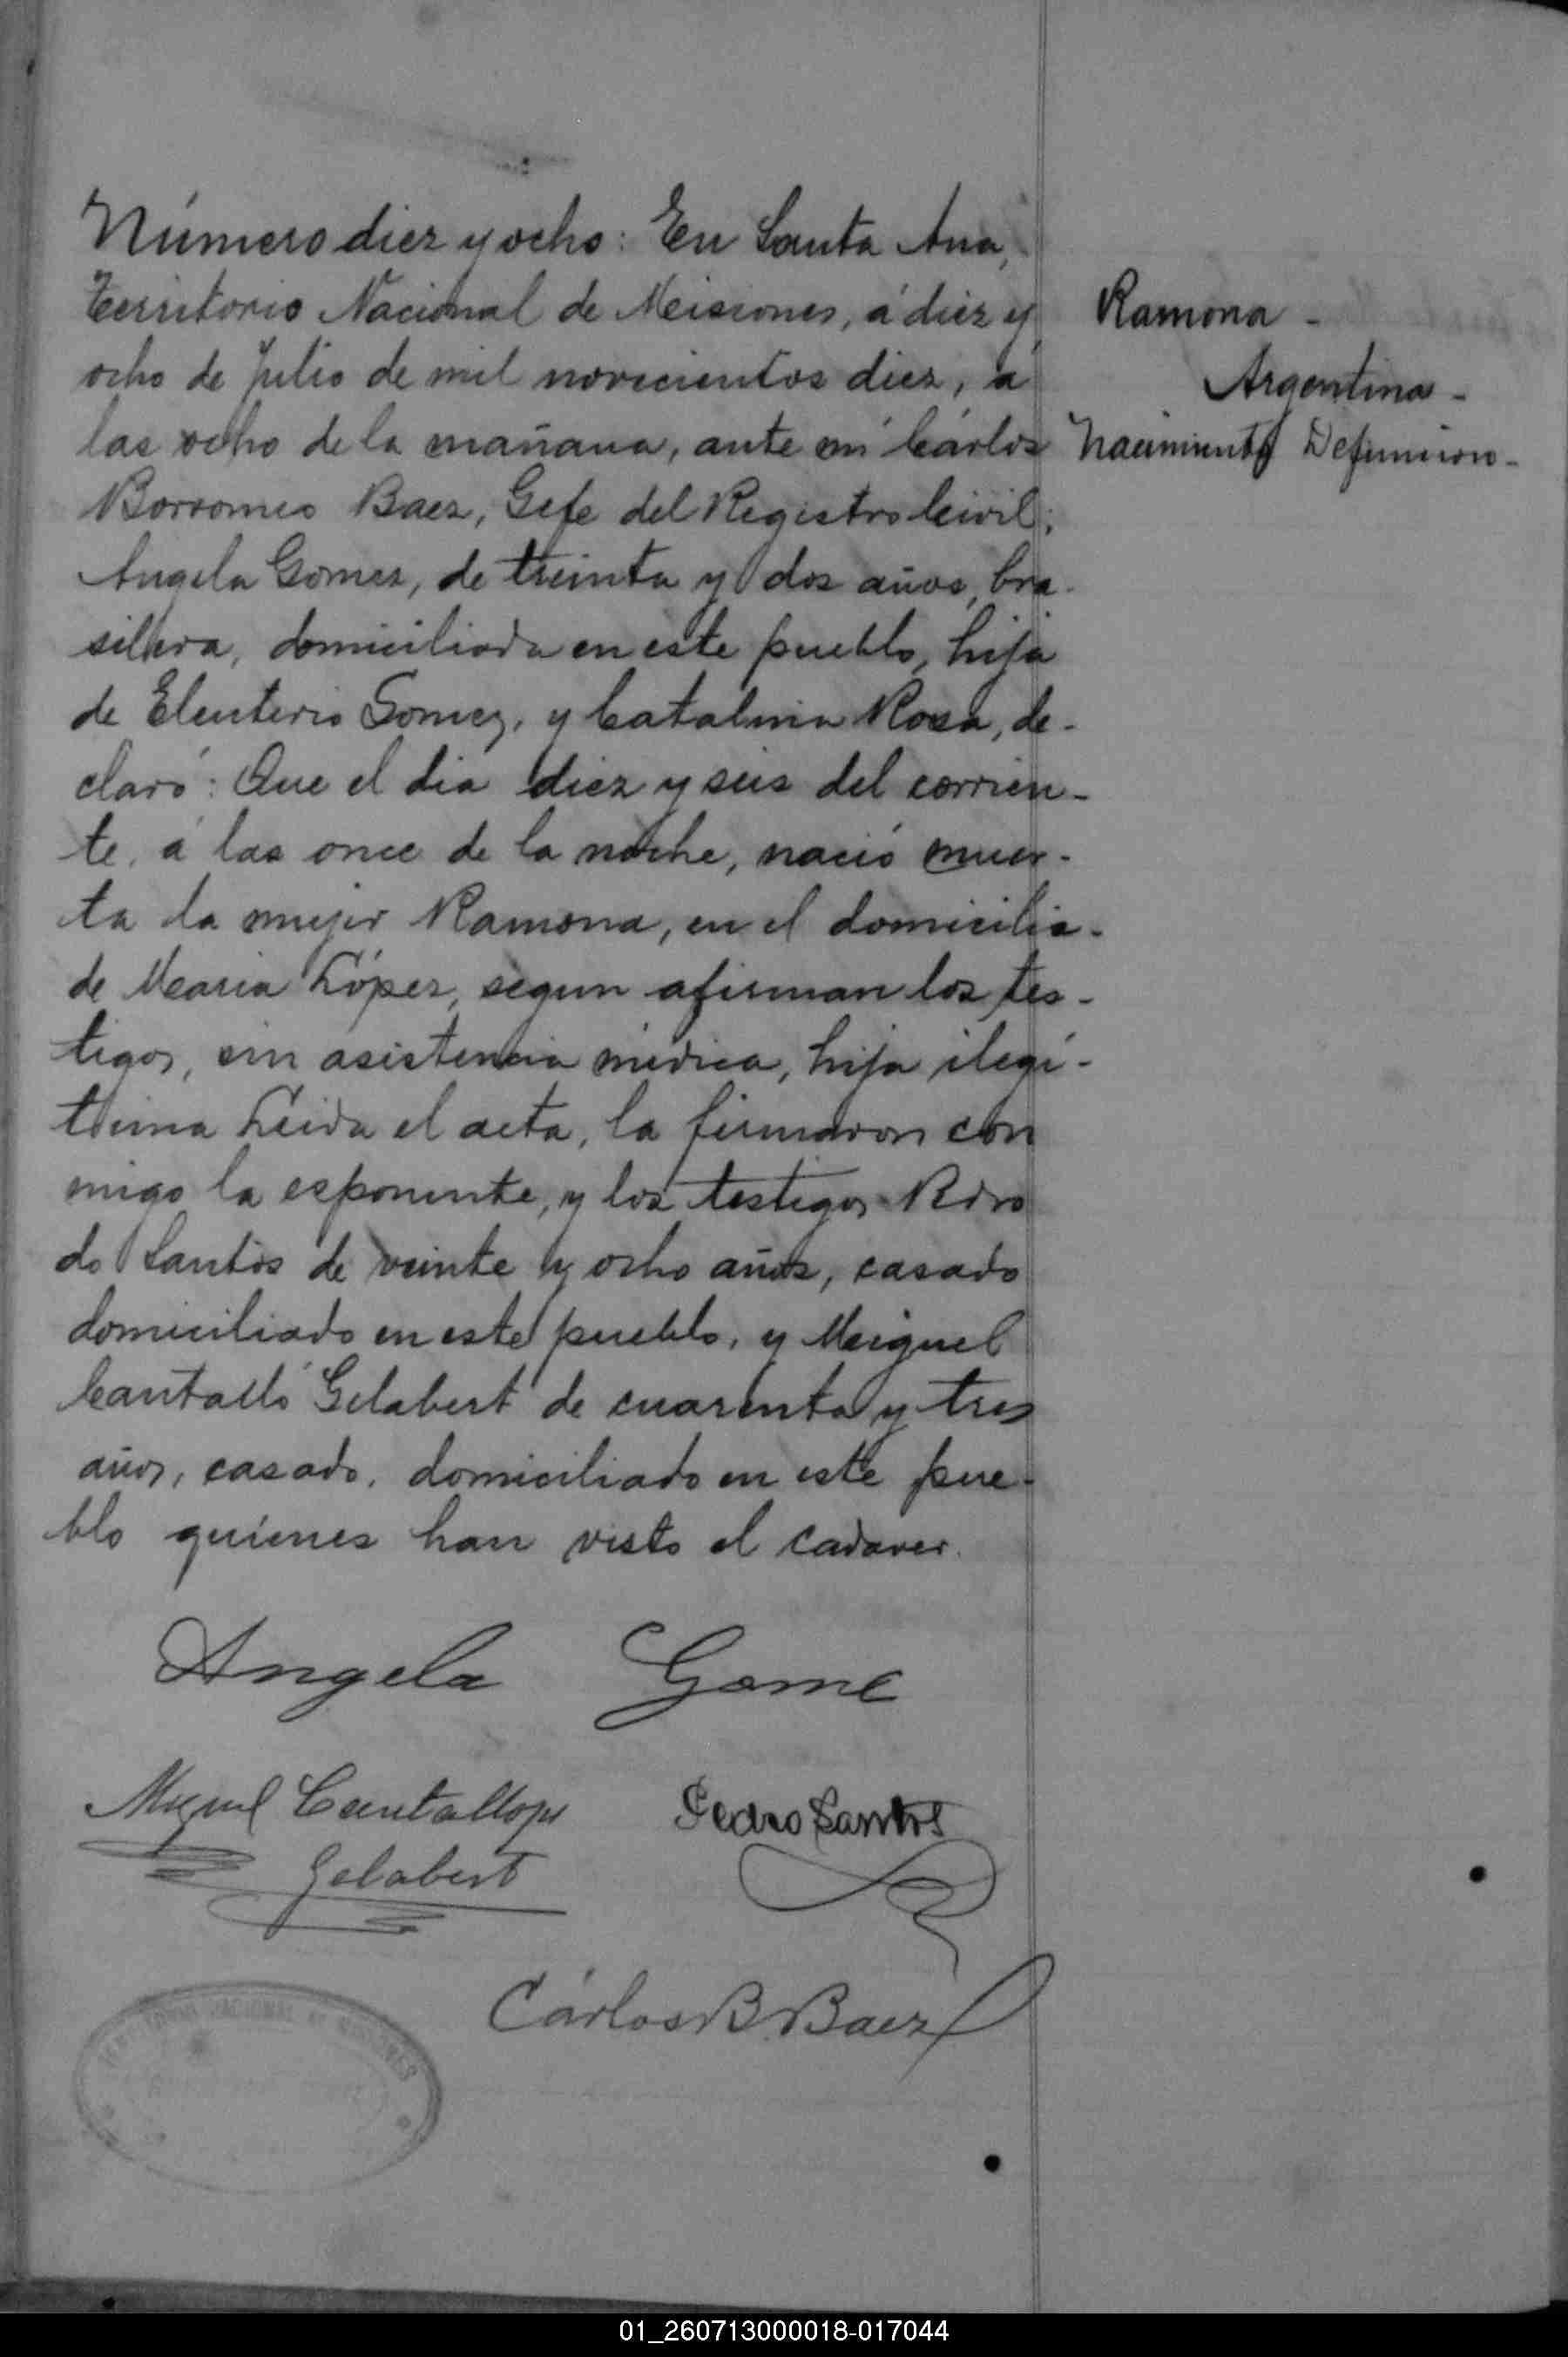 Número diez y ocho: En Santa Ana,
Territorio Nacional de Misiones, á diez y
ocho de Julio de mil novecientos diez, á
las ocho de la mañana, ante mi Cárlos
Borromeo Baez, Gefe del Registro Civil;
Angela Gomez, de treinta y dos años, bra-
silera, domiciliada en este pueblo, hija
de Eleuterio Gomez, y Catalina Rosa, de-
claró: Que el dia diez y seis del corrien-
te, á las once de la noche, nació muer-
ta la mujer Ramona, en el domicilio
de Maria López, segun afirman los tes-
tigos, sin asistencia médica, hija ilegí-
tima Leida el acta, la firmaron con
migo la esponente, y los testigos
do Santos de veinte y ocho años, casado
domiciliado en este pueblo, y Miguel
Cantalló Gelabert de cuarenta y tres
años, casado, domiciliado en este pue-
blo quienes han visto el cadaver.
Ramona -
Argentina -
Nacimiento Defuncion -
Angela Gome
Miguel Cantallops
Gelabert
Pedro Santos
Cárlos B. Baez
NACIONAL DE MISIONES
01_260713000018-017044